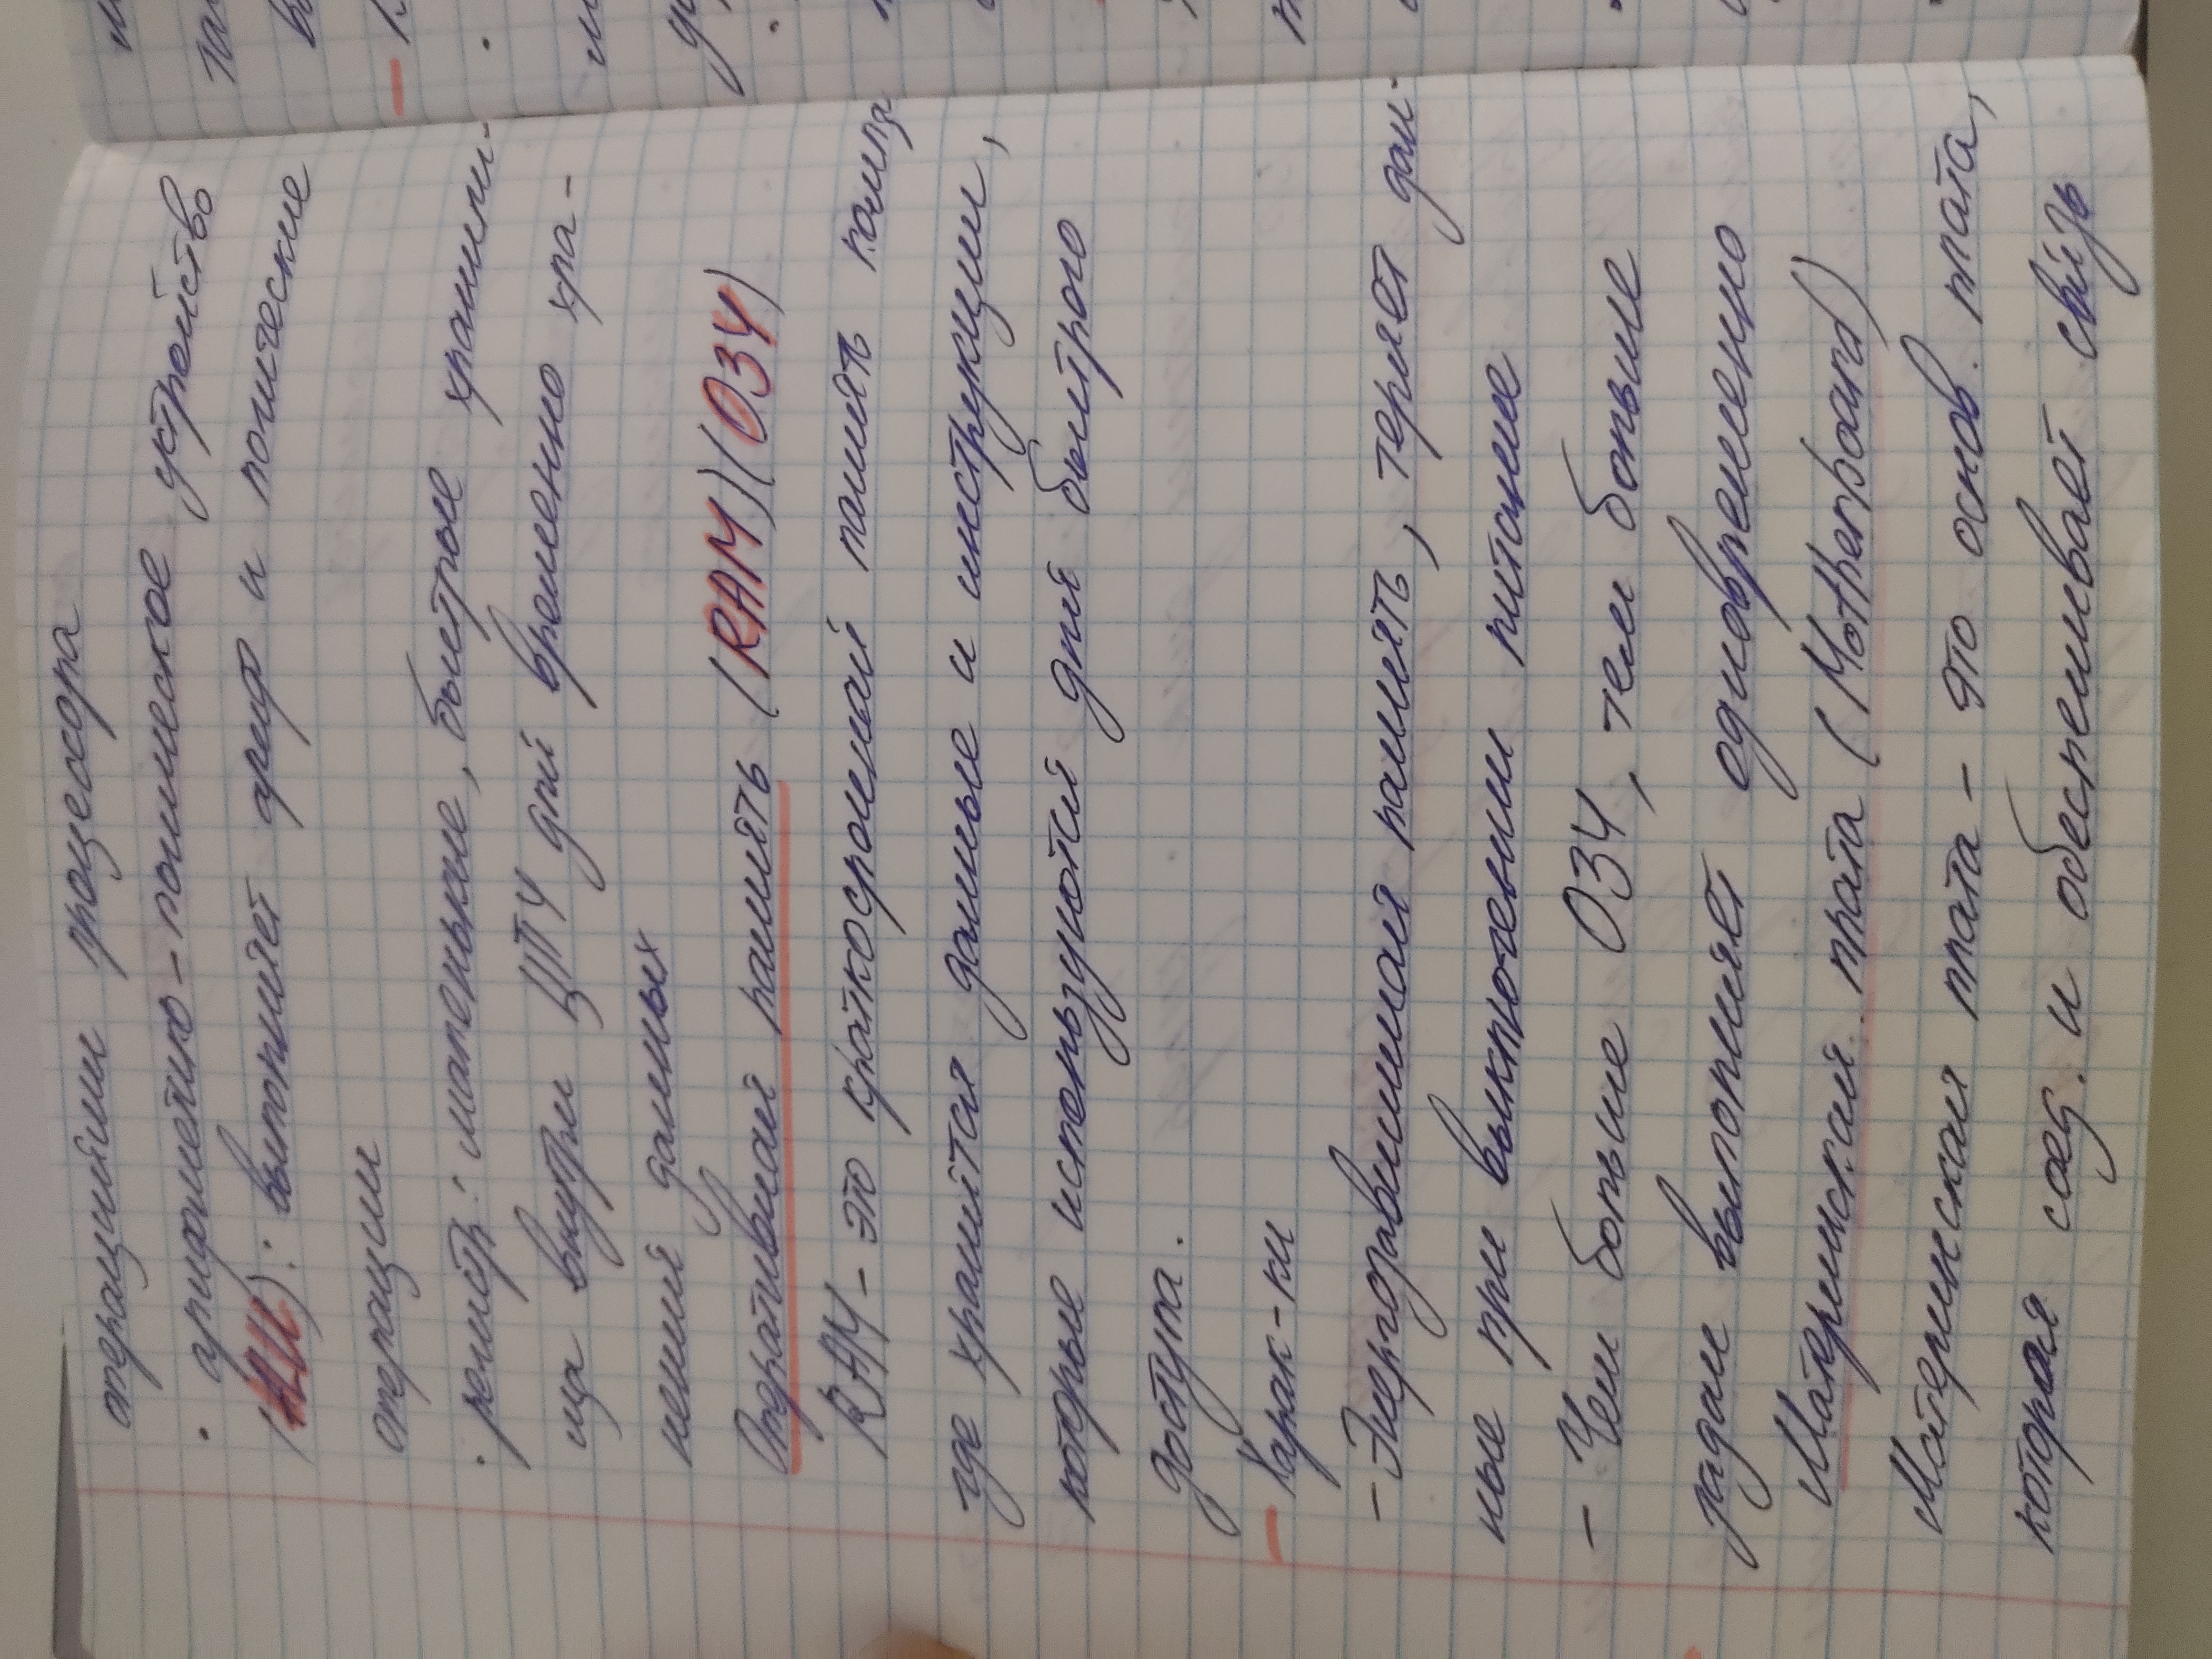 операциями процессора
· арифметико-логическое устройство
(ALU): выполняет ариф и логические
операции
· регистр: маленькие, быстрые хранили-
ща внутри ЦПУ для временно хра-
нения данных
Оперативная память (RAM)(ОЗУ)
RAM - это краткосрочная память
где хранятся данные и инструкции,
которые используются для быстрого
доступа.
- Харак-ки
- Энергозависимая память, теряет дан-
ные при выключении питание
- Чем больше ОЗУ, тем больше
задач выполняет одновременно
Материнская плата (Motherboard)
Материнская плата - это основ. плата,
которая соед. и обеспечивает связь